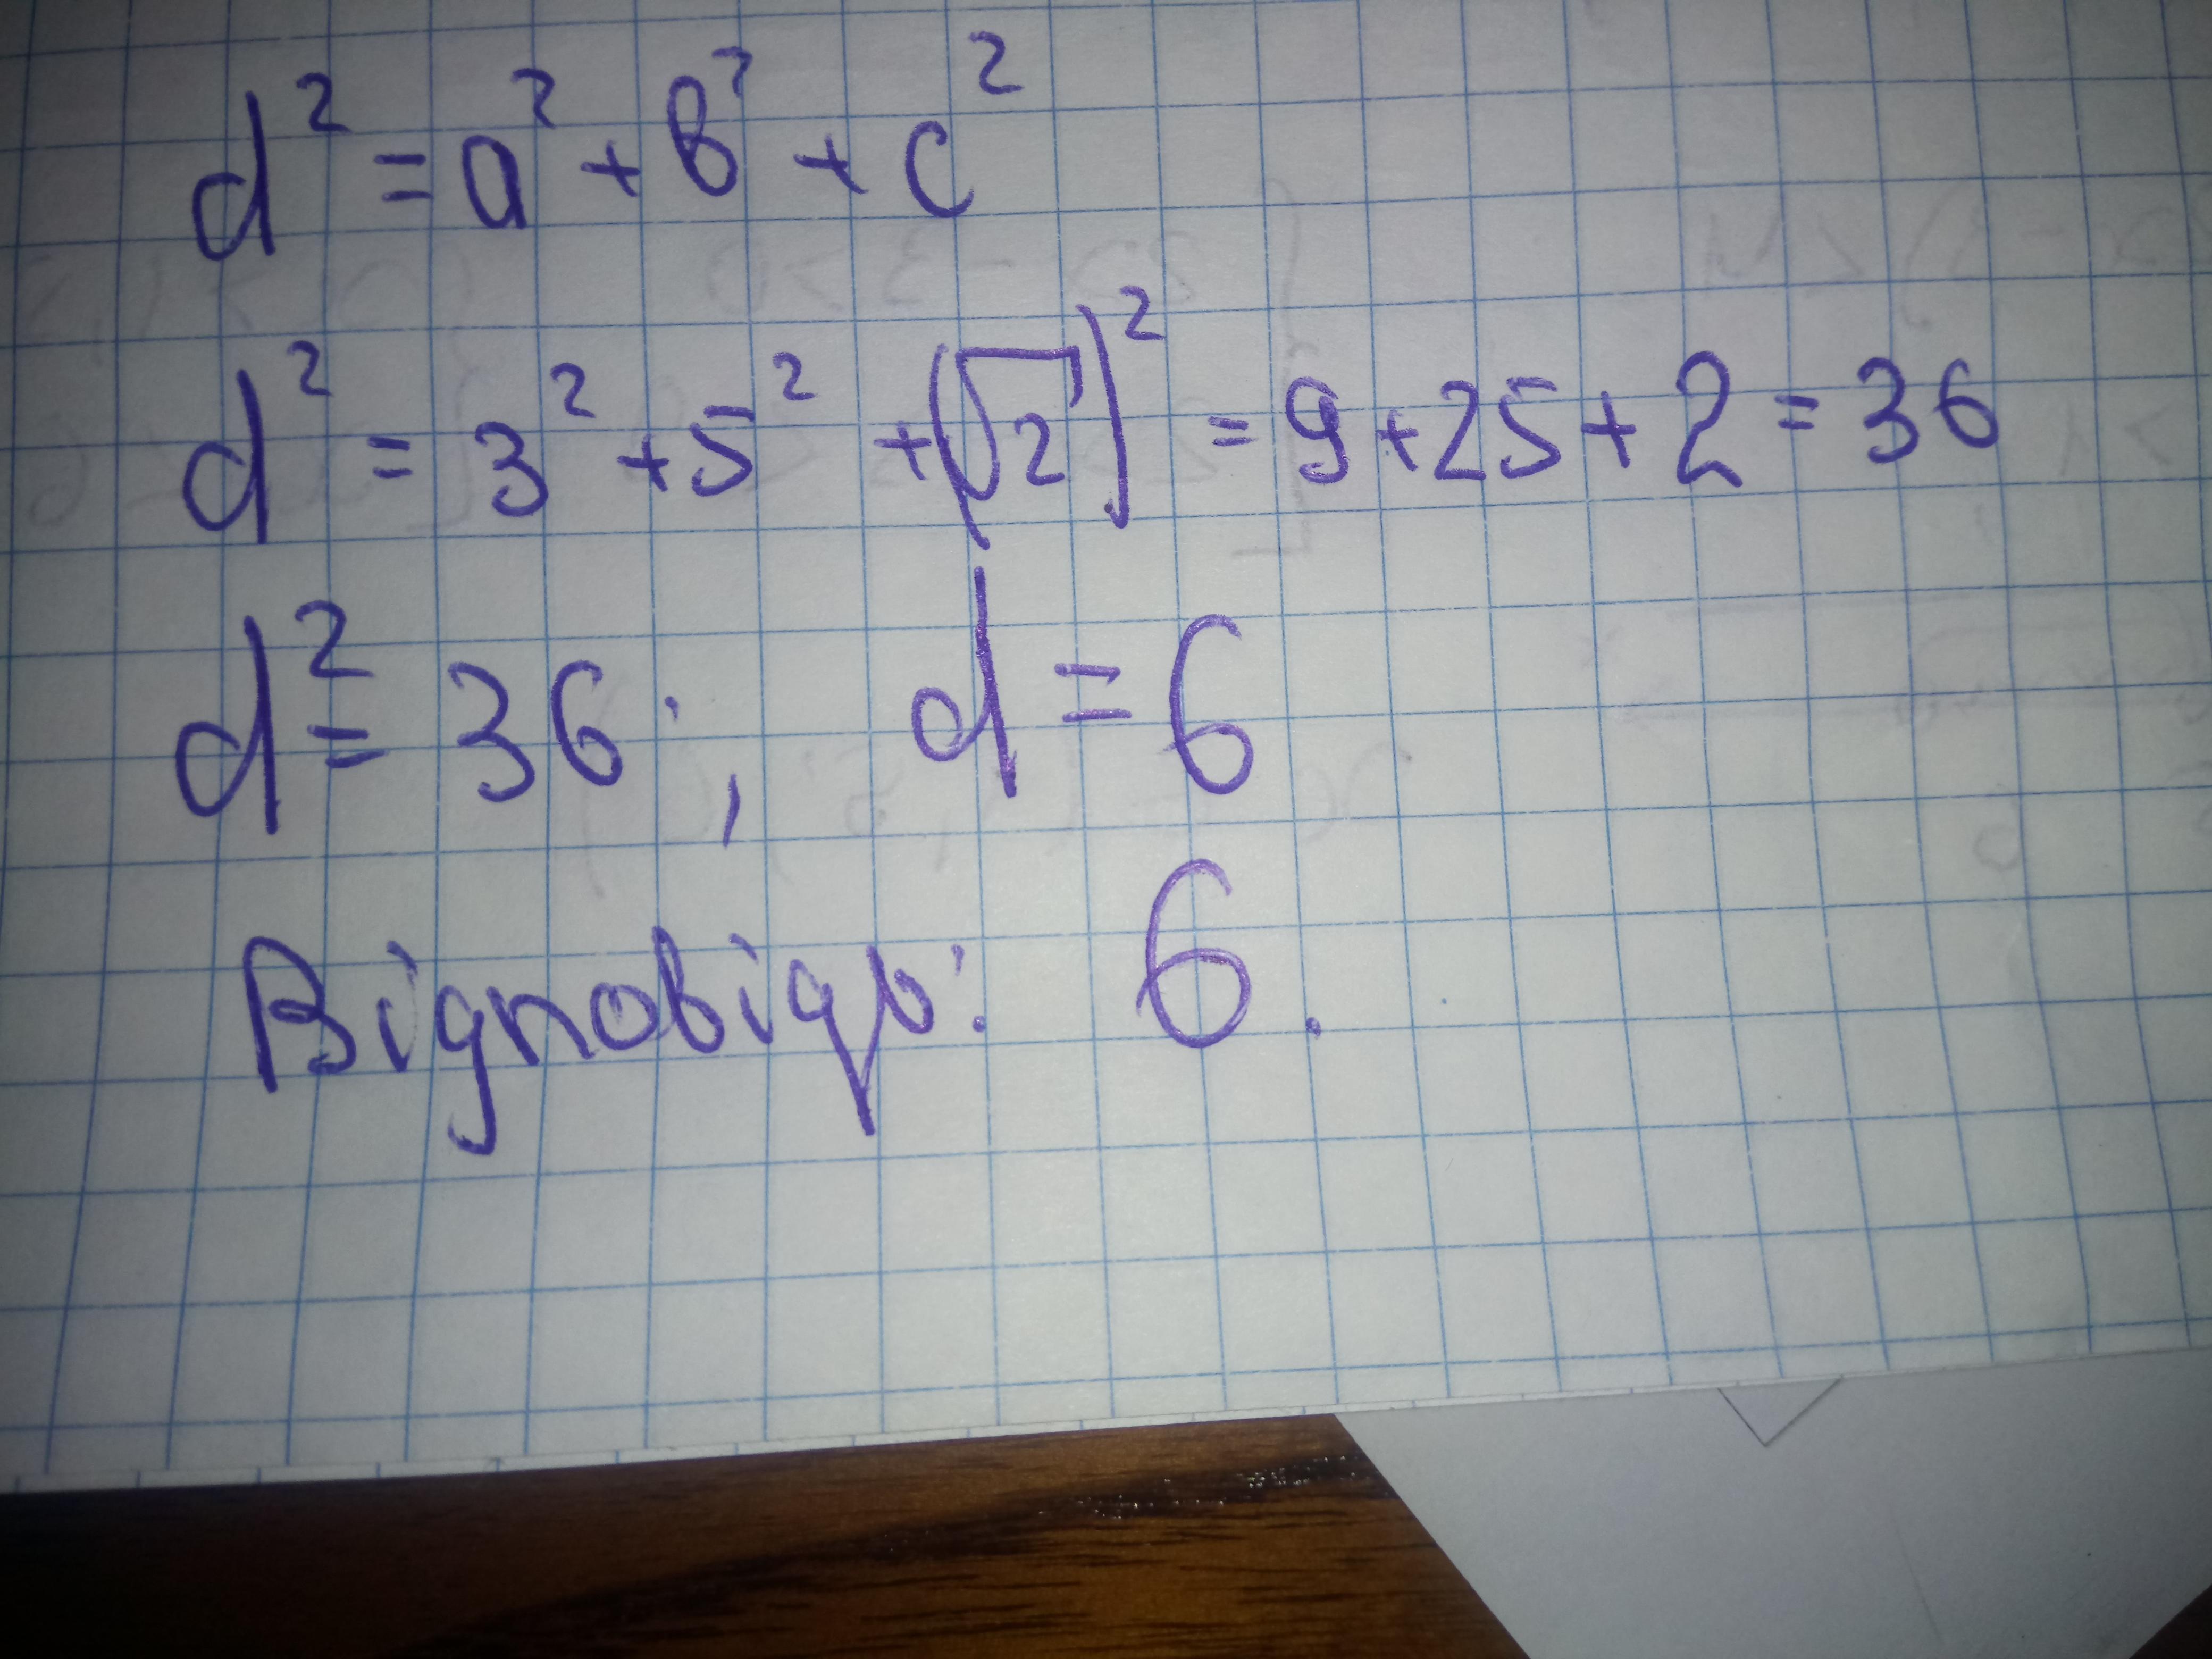 d² = a² + b² + c²
d² = 3² + 5² + (√2)² = 9 + 25 + 2 = 36
d² = 36; d = 6
Відповідь: 6.